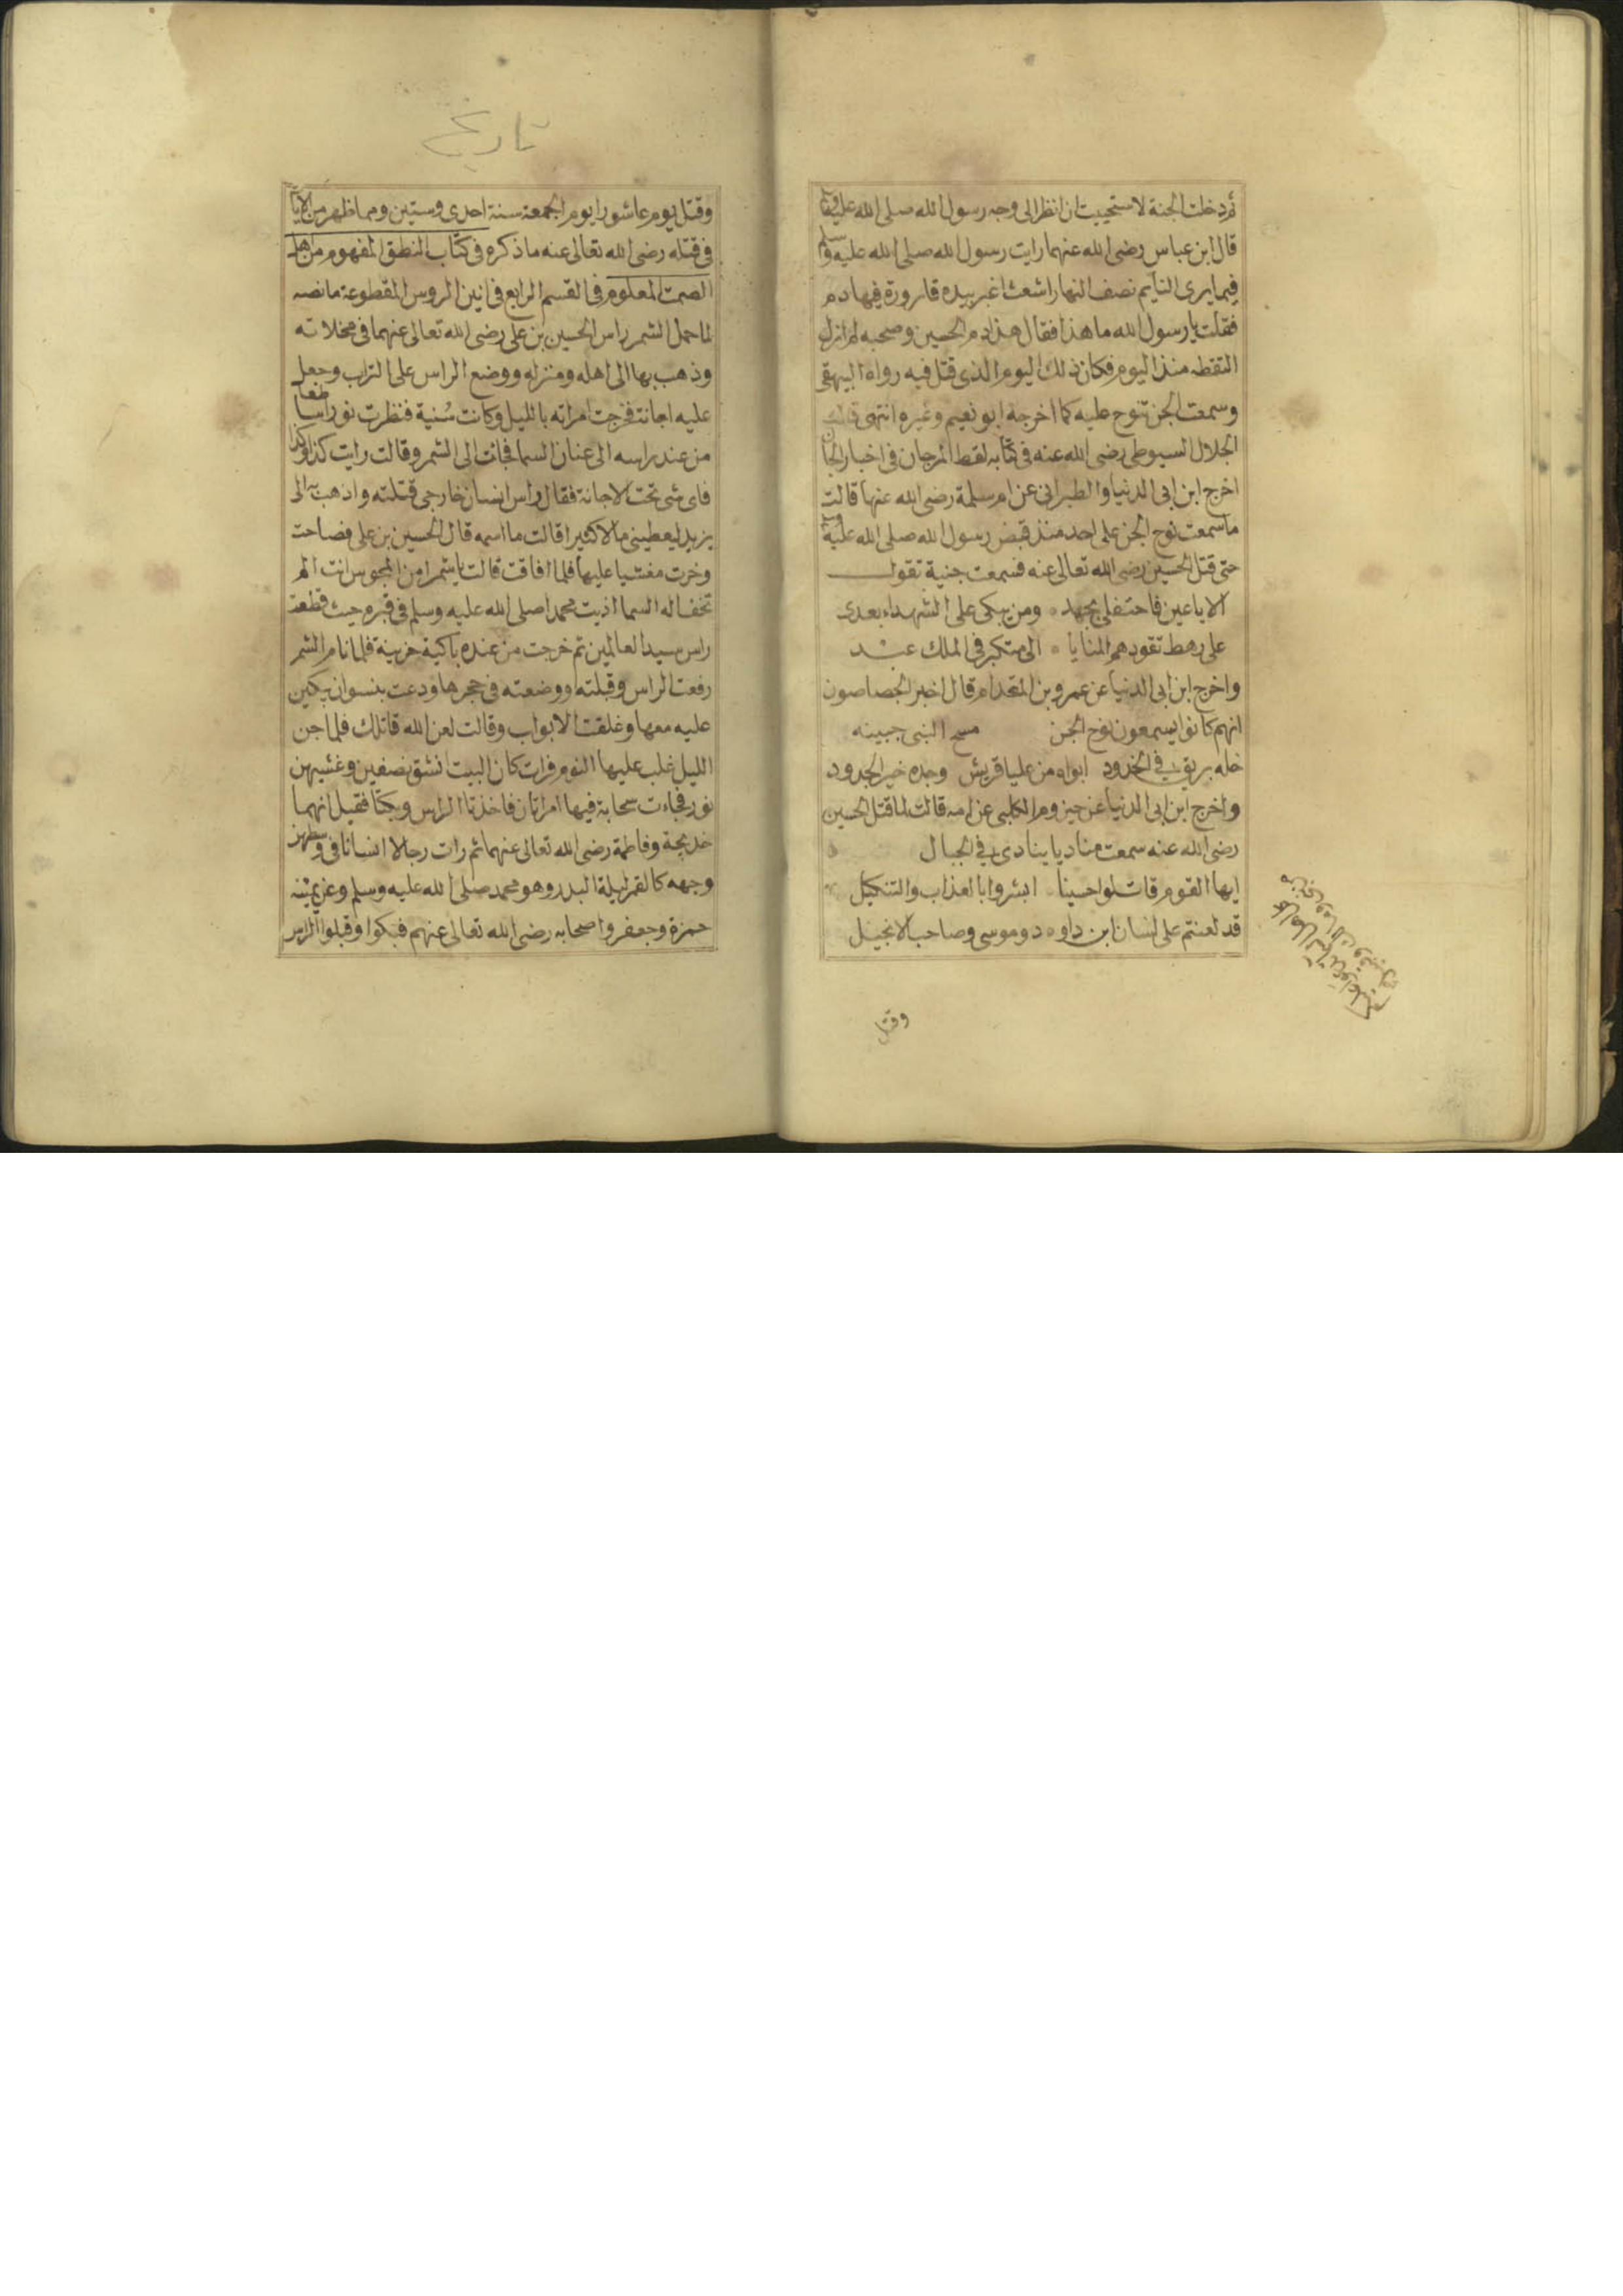 ثم دخلت الجنة لاستحييت ان انظر الى وجه رسول الله صلى الله عليه
قال ابن عباس رضى الله عنهما رايت رسول الله صلى الله عليه وسلم
فيما يرى النايم نصف النهار اشعث اغبر بيده قارورة فيها دم
فقلت يا رسول الله ما هذا فقال هذا دم الحسين وصحبه لم ازل
التقطه منذ اليوم فكان ذلك اليوم الذى قتل فيه رواه البيهقى
وسمعت الجن تنوح عليه كما اخرجه ابو نعيم وغيره انتهى
الجلال السيوطى رضى الله عنه فى كتابه لقط المرجان فى اخبار الجان
اخرج ابن ابى الدنيا والطبرانى عن ام سلمة رضى الله عنها قالت
ما سمعت نوح الجن على احد منذ قبض رسول الله صلى الله عليه
حتى قتل الحسين رضى الله تعالى عنه فسمعت جنية تقول
الا يا عين فاحتفلى بجهد ومن يبكى على الشهداء بعدى
على رهط تقودهم المنايا الى متكبر فى الملك عبد
واخرج ابن ابى الدنيا عن عمرو بن المقدام قال اخبر الجصاصون
انهم كانوا يسمعون نوح الجن مسح النبى جبينه
فله بريق فى الخدود ابواه من عليا قريش وجده خير الجدود
واخرج ابن ابى الدنيا عن حيزوم الكلبى عن امه قالت لما قتل الحسين
رضى الله عنه سمعت مناديا ينادى فى الجبال
ايها القوم قاتلوا حسينا ابشروا بالعذاب والتنكيل
قد لعنتم على لسان ابن داو د وموسى وصاحب الانجيل
وقتل
تاريخ
وقتل يوم عاشورا يوم الجمعة سنة احدى وستين ومما ظهر من الايات
فى قتله رضى الله تعالى عنه ما ذكره فى كتاب النطق المفهوم من اهل
الصمت المعلوم فى القسم الرابع فى انين الروس المقطوعة ما نصه
لما حمل الشمر راس الحسين بن على رضى الله تعالى عنهما فى مخلاته
وذهب بها الى اهله ومنزله ووضع الراس على التراب وجعل
عليه اجانة فخرجت امراته بالليل وكانت سُنية فنظرت نورا ساطعا
من عند راسه الى عنان السما فجات الى الشمر وقالت رايت كذا وكذا
فاى شى تحت الاجانة فقال راس انسان خارجى قتلته واذهب به الى
يزيد ليعطينى مالا كثيرا قالت ما اسمه قال الحسين بن على فصاحت
وخرت مغشيا عليها فلما افاقت قالت يا شمرا من المجوس انت الم
تخف اله السما اذيت محمدا صلى الله عليه وسلم فى قبره حيث قطعت
راس سيد العالمين ثم خرجت من عنده باكية حزينة فلما نام الشمر
رفعت الراس وقبلته ووضعته فى حجرها ودعت بنسوان يبكين
عليه معها وغلقت الابواب وقالت لعن الله قاتلك فلما جن
الليل غلب عليها النوم فرات كان البيت انشق نصفين وغشيهن
نور فجاءت سحابة فيها امراتان فاخذتا الراس وبكتا فقيل انهما
خديجة وفاطمة رضى الله تعالى عنهما ثم رات رجالا انسانا فى وسطهم
وجهه كالقمر ليلة البدر وهو محمد صلى الله عليه وسلم وعن يمينه
حمزة وجعفر واصحابه رضى الله تعالى عنهم فبكوا وقبلوا الراس